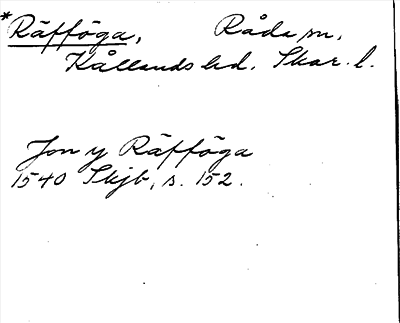 *Räfföga, Råda sn,
Kållands hd. Skar. l.
Jon y Räfföga
1540 Skjb, s. 152.